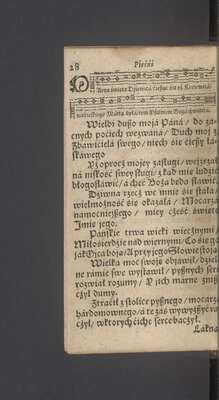 28 Pieśni
Wielbi dusso moja Páná / do zá-
cnych pociech wezwana / Duch moj z
Zbawicielá swego / niech sie cieszy tá-
skáwego
Yż oprocz mojey zasługi / weyzrzał
na niskość swey sługi / z kąd mie ludzie
błogosłáwić / a chce Boga będą sławić.
Dziwna rzecz we mnie sie sstała /
wielmożność sie okazała / Mocarzá
namocnieyszego / miey cześć święte
Imie jego.
Pańskie trwa wieki wiecznymi
Miłosierdzie nad wiernymi / Co sie go
jak Oycá boją / A przy jego Słowie stoją
Wielka moc swoje objawił / dziel-
ne rámie swe wystawił / pysznych serc
rozwiał rozumy / Y jich marne zni-
czył dumy.
Ztracił z stolice pysznego / mocarzá
hárdomownego / a te záś wywyższył rá-
czył / w ktorych ciche serce baczył.
Łákną